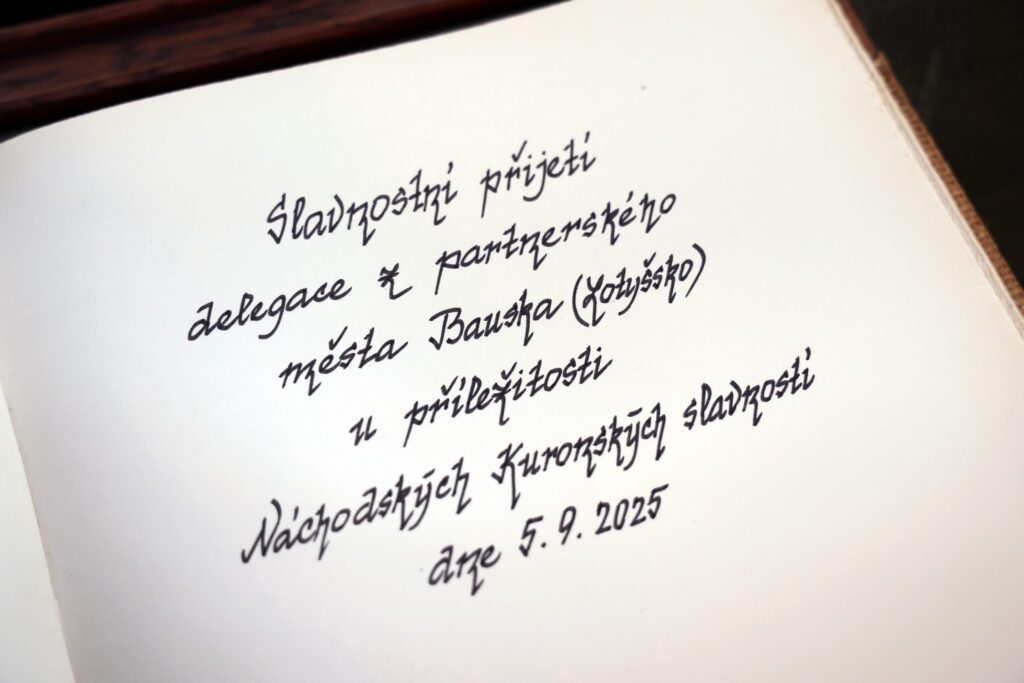 Slavnostní přijetí
delegace z partnerského
města Bauska (Lotyšsko)
u příležitosti
Náchodských Kuronských slavností
dne 5.9.2025